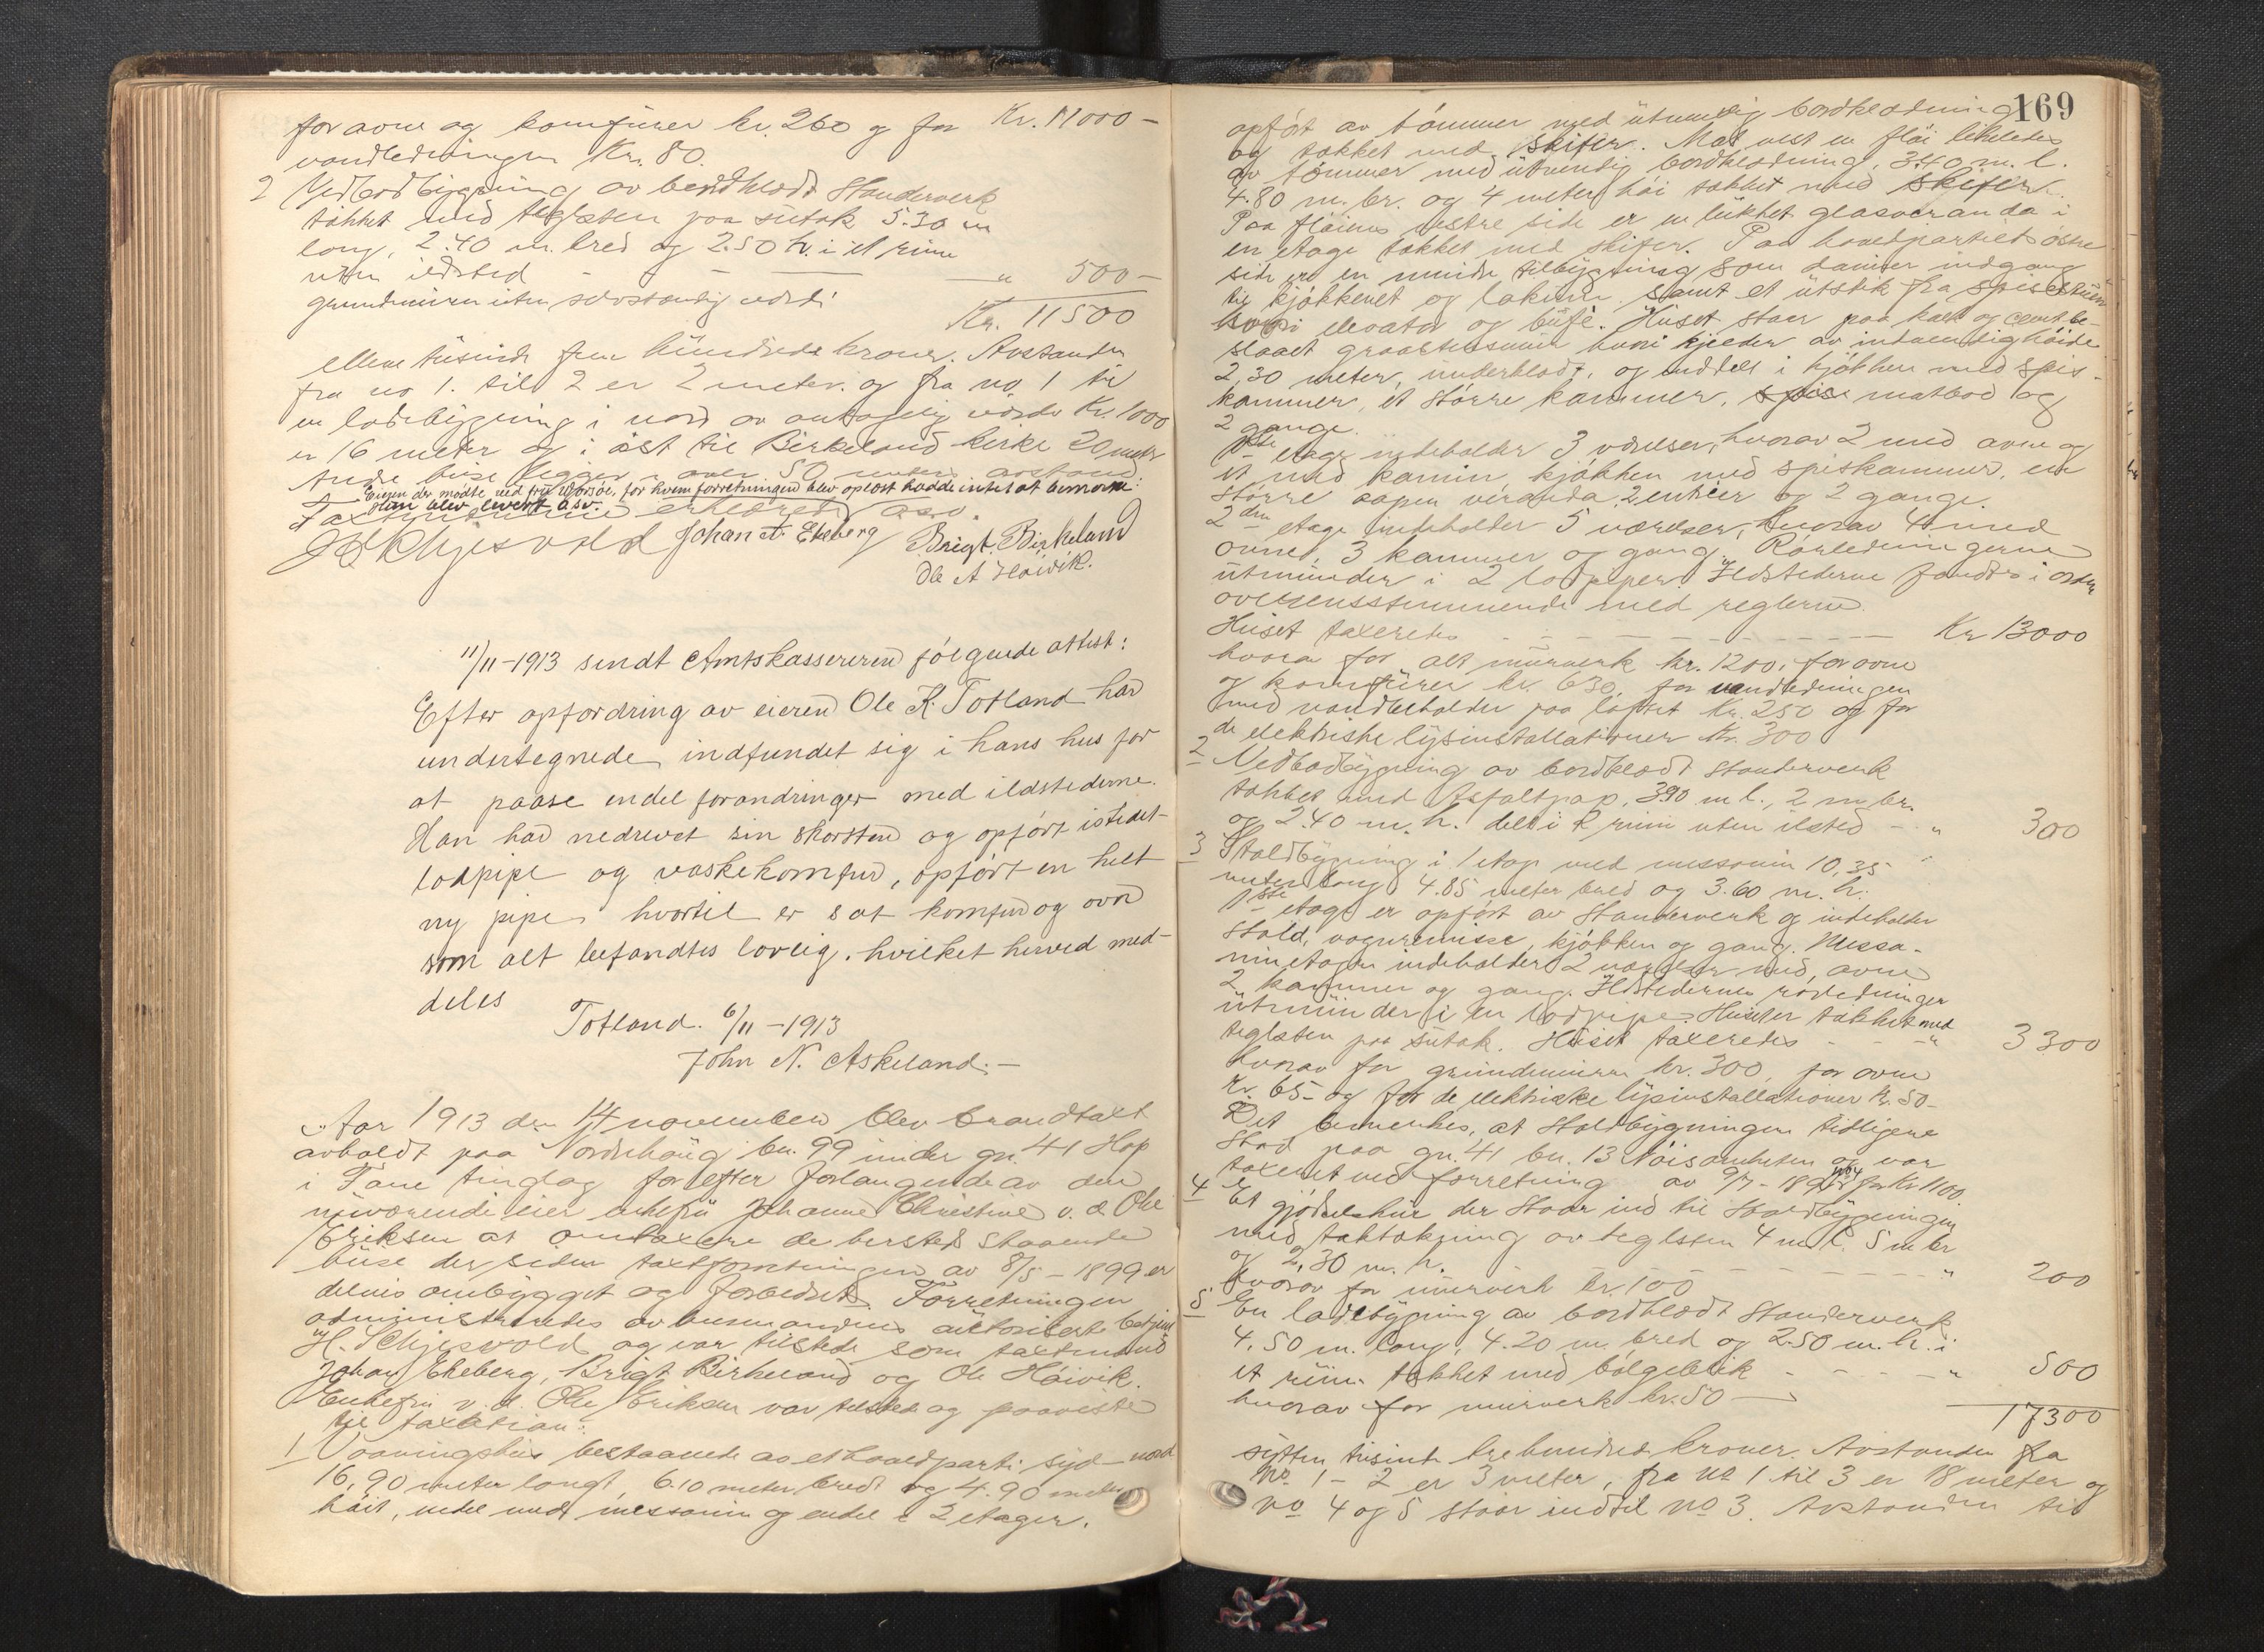 for ovne og komfurer kr. 260 og for Kr. 11000 –
vandledningen Kr. 80.
2 Vedbodbygning av bordklædt Standerverk
tækket med teglsten paa sutak 5.30 m
lang, 2.40 m. bred og 2.50 h. i et rum
uten ildsted - - — " 500 –
grundmuren uten selvstændig værdi
Kr. 11500
elleve tusinde fem hundrede kroner. Avstanden
fra no 1. til 2 er 2 meter. og fra no 1 til
en ladebygning i nord av antagelig værdi Kr. 1000
er 16 meter og i øst til Birkeland kirke 20 meter
Andre huse ligger i over 50 meter avstand
Eieren der mødte ved fru Worsøe, for hvem forretningen blev oplæst hadde intet at bemærke.
Han blev levert a.s.v.
Taxtmændene erklærede a.s.v.
H Schjesvold Johan Ekeberg Brigt. Birkeland
Ole A Høivik.
11/11-1913 sendt Amtskassereren følgende attest:
Efter opfordring av eieren Ole K. Totland har
undertegnede indfundet sig i hans hus for
at paase endel forandringer med ildstederne.
Han har nedrevet sin skorsten og opført istedet
lodpipe og vaskekomfur, opført en helt
ny pipe hvortil er sat komfur og ovn
som alt befandtes lovlig. hvilket herved med-
deles
Totland. 6/11 – 1913
John N. Askeland. –
Aar 1913 den 14 november blev brandtaxt
avholdt paa Nordrehaug bn. 99 under gn. 41 Hop
i Fane tinglag for efter forlangende av den
nuværende eier enkefru Johanne Christine v. d. Ole
Eriksen at omtaxere de hersteds staaende
huse der siden taxtforretningen av 8/5 – 1899 er
delvis ombygget og forbedret. Forretningen
administreredes av lensmandens autoriserte betjent
H. Schjesvold og var tilstede som taxtmænd
Johan Ekeberg, Brigt Birkeland og Ole Høivik.
Enkefru v. d. Ole Eriksen var tilstede og paaviste
til taxation:
1 Vaaningshus bestaaende av et hovedparti syd – nord
16,90 meter langt, 6.10 meter bredt og 4.90 meter
høit, endel med messanin og endel i 2 etager.
169
opført av tømmer med utvendig bordklædning
og tækket med skifer. Mot vest en fløi likeledes
av tømmer med utvendig bordklædning, 3.40 m. l.
4.80 m. br. og 4 meter høi tækket med skifer.
Paa fløiens vestre side er en lukket glasveranda i
en etage tækket med skifer. Paa hovedpartiets østre
side er en mindre tilbygning som danner indgang
til kjøkkenet og lokum samt et utstik fra spisestuen
hvori elevator og bufé. Huset staar paa kalk og cement be-
slaaet graastensmur hvori kjelder av indvendig høide
2,30 meter, underklædt, og inddelt i kjøkken med spis-
kammer, et større kammer, matbod og
2 gange.
1ste etage indeholder 3 værelser, hvorav 2 med ovne og
et med kamin kjøkken med spiskammer, en
større aapen veranda 2 entréer og 2 gange.
2den etage indeholder 5 værelser, hvorav 4 med
ovne, 3 kammer og gang. Rørledningerne
utmunder i 2 lodpiper. Ildstederne fandtes i orden
overensstemmende med reglerne.
Huset taxeredes - - - Kr 13000
hvorav for alt murverk kr. 1200, for ovne
og komfurer kr. 630, for vandledningen
med vandbeholder paa loftet Kr. 250 og for
de elektriske lysinstallationer kr. 300
2 Vedbodbygning av bordklædt standerverk
tækket med Asfaltpap, 3.90 m l., 2 m br.
og 2.40 m. h. delt i 2 rum uten ilsted - " 300
3 Staldbygning i 1 etage med messanin 10,35
meter lang 4.85 meter bred og 3.60 m. h.
1ste etage er opført av Standerverk og indeholder
stald, vognremisse, kjøkken og gang. Messa-
ninetagen indeholder 2 værelser med ovne
2 kammer og gang. Ildstedernes rørledninger
utmunder i en lodpipe. Huset er tækket med
teglsten paa sutak. Huset taxeredes - - " 3300
hvorav for grundmuren kr. 300, for ovne
kr. 65 – og for de elektriske lysinstallationer kr. 50 –
Det bemerkes, at staldbygningen tidligere
stod paa gn. 41 bn. 13 og var
taxeret ved forretning av for Kr 1100
4 Et gjødselhus der staar ind til staldbygningen
med taktækning av teglsten 4 m l. 5 m br
og 2,30 m. h. - - - " 200
hvorav for murverk kr. 100
5 En ladebygning av bordklædt standerverk
4,50 m. lang, 4.20 m. bred og 2.50 m. h. i
et rum tækket med bølgeblik - - - " 500
hvorav for murverk kr. 50 –
17300
sytten tusinde trehundrede kroner. Avstanden fra
No. 1 – 2 er 3 meter, fra No 1 til 3 er 18 meter og
No 4 og 5 staar indtil No 3. Avstanden til